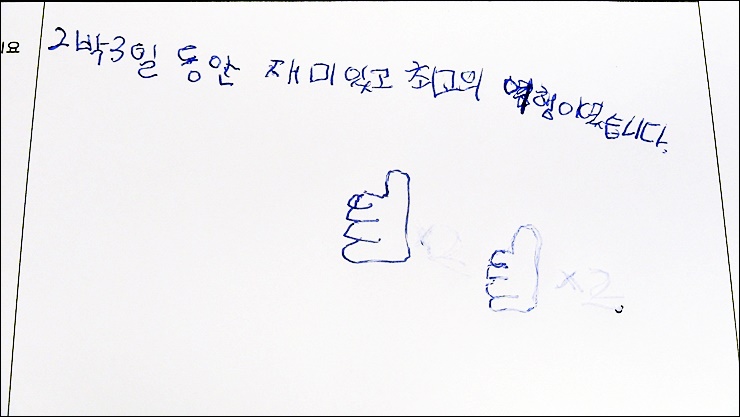 요
2박3일 동안 재미있고 최고의 여행이였습니다.
×2